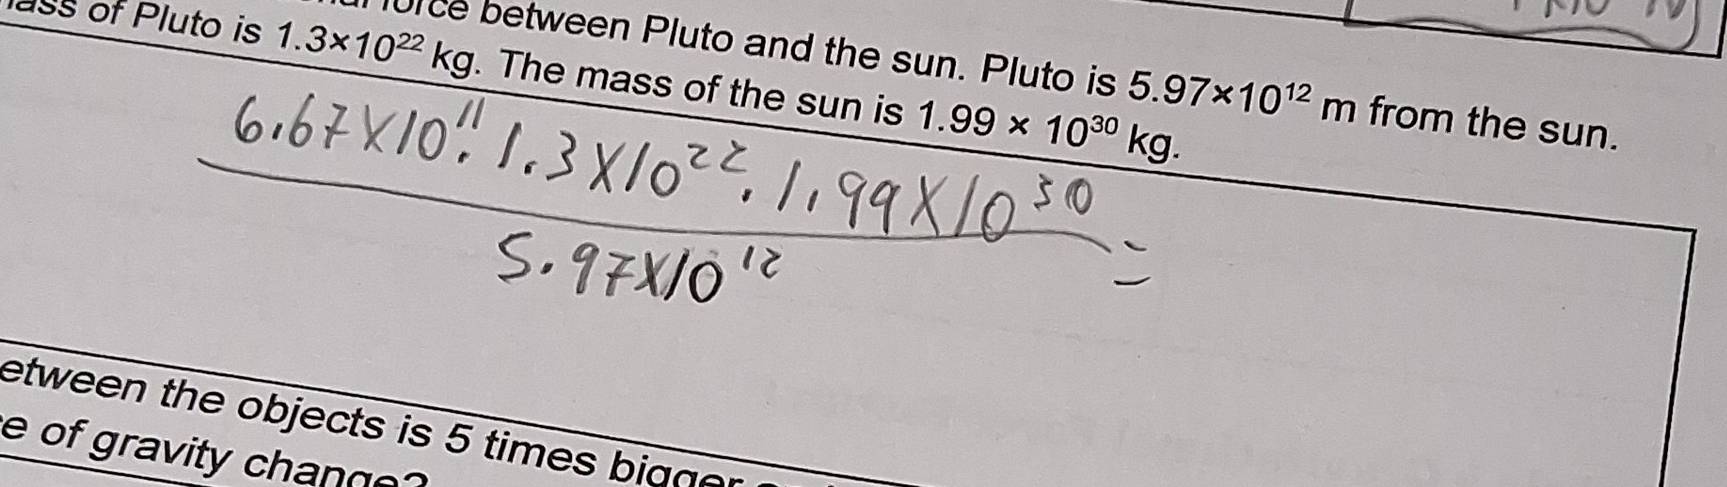 between Pluto and the sun. Pluto is 5.97×10¹² m from the sun.
of Pluto is 1.3×10²² kg. The mass of the sun is 1.99 × 10³⁰ kg.
6.67×10¹¹ . 1.3×10²² . 1.99×10³⁰
5.97×10¹² =
etween the objects is 5 times bigger
e of gravity change?